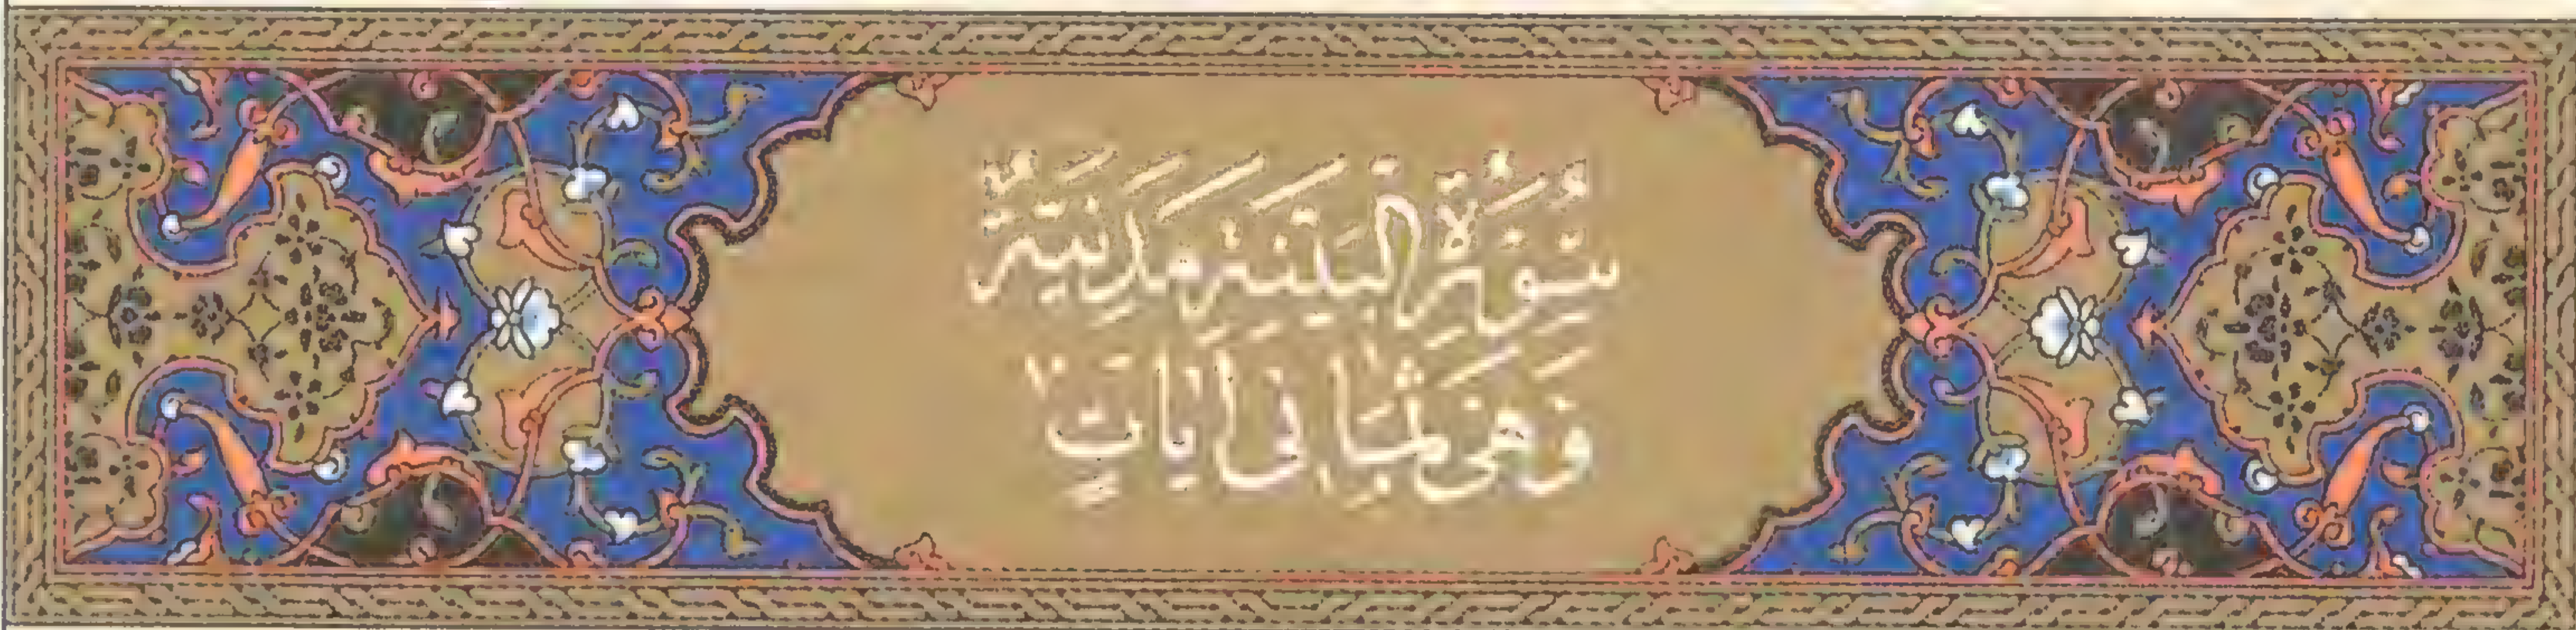 سُورَةُ الْبَيِّنَةِ مَدَنِيَّةٌ
وَهِيَ ثَمَانِي اٰيَاتٍ